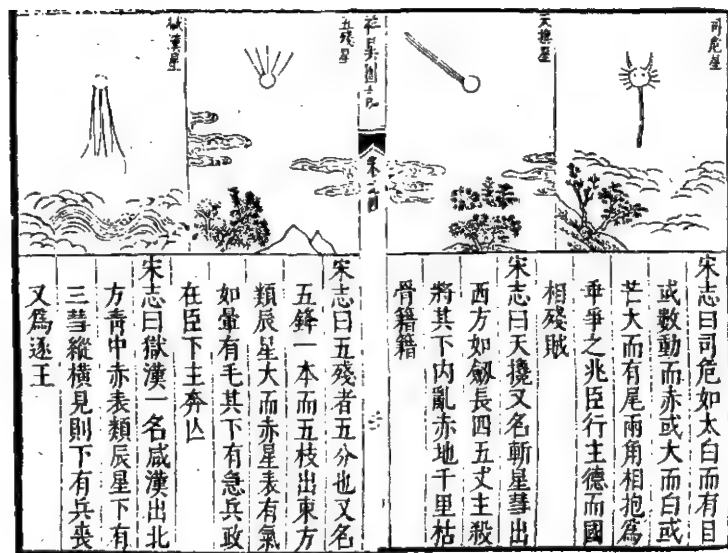 司危星
宋志曰司危如太白而有目
或數動而赤或大而白或
芒大而有尾兩角相抱爲
乖爭之兆臣行主德而國
相殘賊
天攙星
宋志曰天攙又名斬星彗出
西方如劒長四五丈主殺
將其下內亂赤地千里枯
骨籍籍
五殘星
宋志曰五殘者五分也又名
五鋒一本而五枝出東方
類辰星大而赤星表有氣
如暈有毛其下有急兵政
在臣下主奔亾
獄漢星
宋志曰獄漢一名咸漢出北
方青中赤表類辰星下有
三彗縱橫見則下有兵喪
又爲逐王